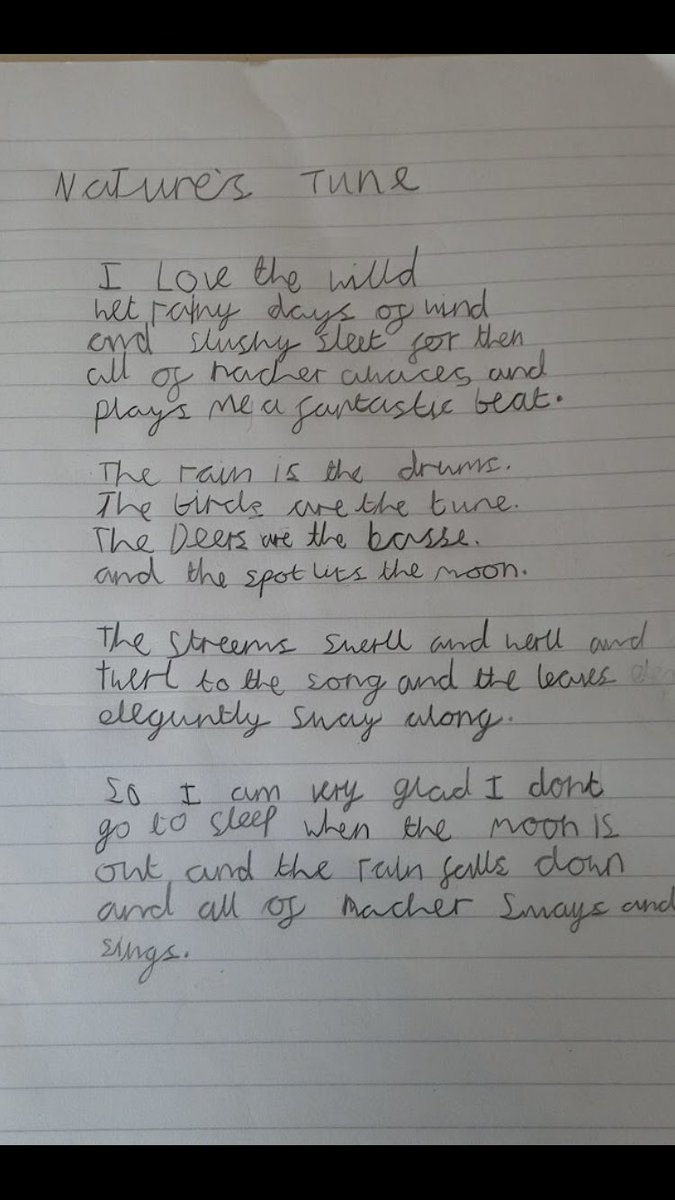 Nature's Tune
I Love the willd
wet rainy days of wind
and slushy sleet for then
all of nacher awaces and
plays me a fantastic beat.
The rain is the drums.
The birds are the tune.
The Deers are the basse.
and the spot lits the moon.
The streems swerll and werll and
twerl to the song and the leaves
eleguntly sway along.
So I am very glad I dont
go to sleep when the moon is
out and the rain falls down
and all of nacher sways and
sings.